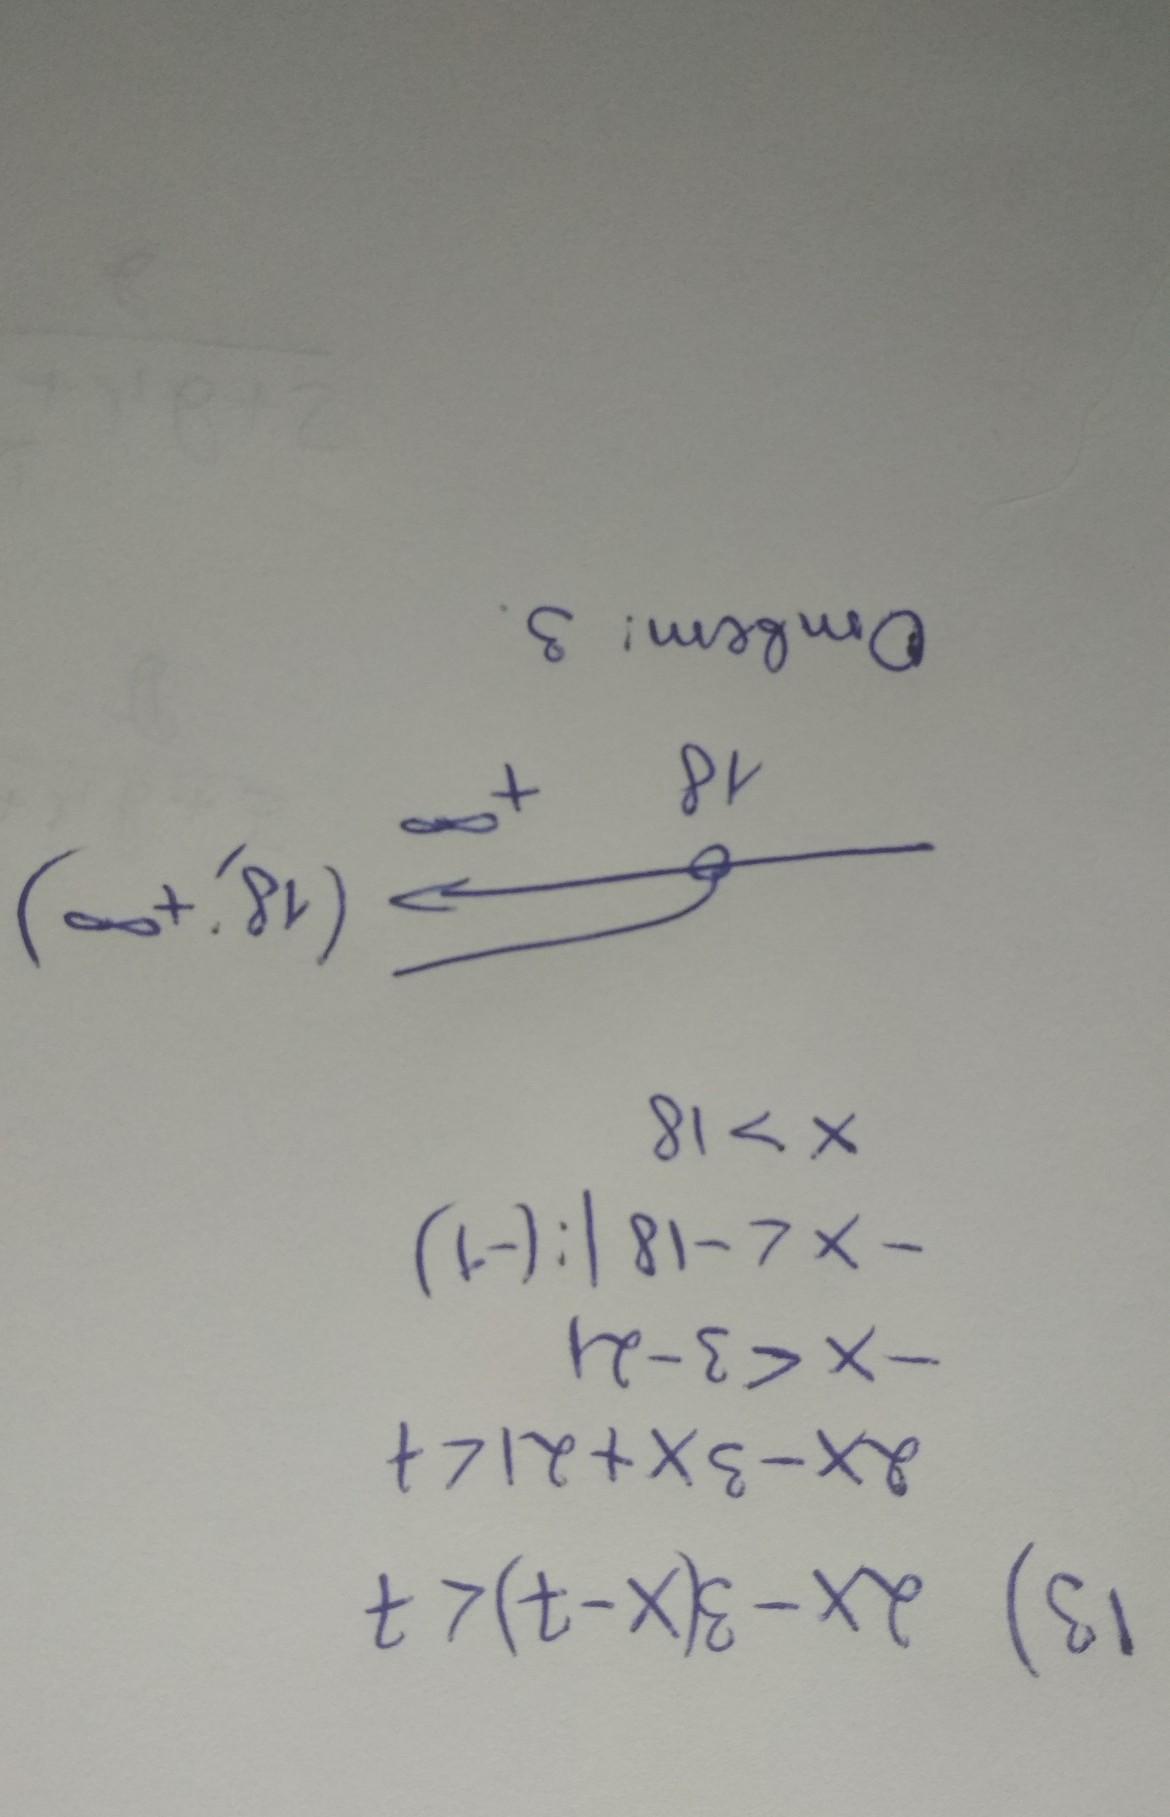 13) 2x-3(x-7)<7
2x-3x+21<7
-x<3-21
-x<-18 |:(-1)
x>18
(18; +∞)
18 +∞
Ответ: 3.